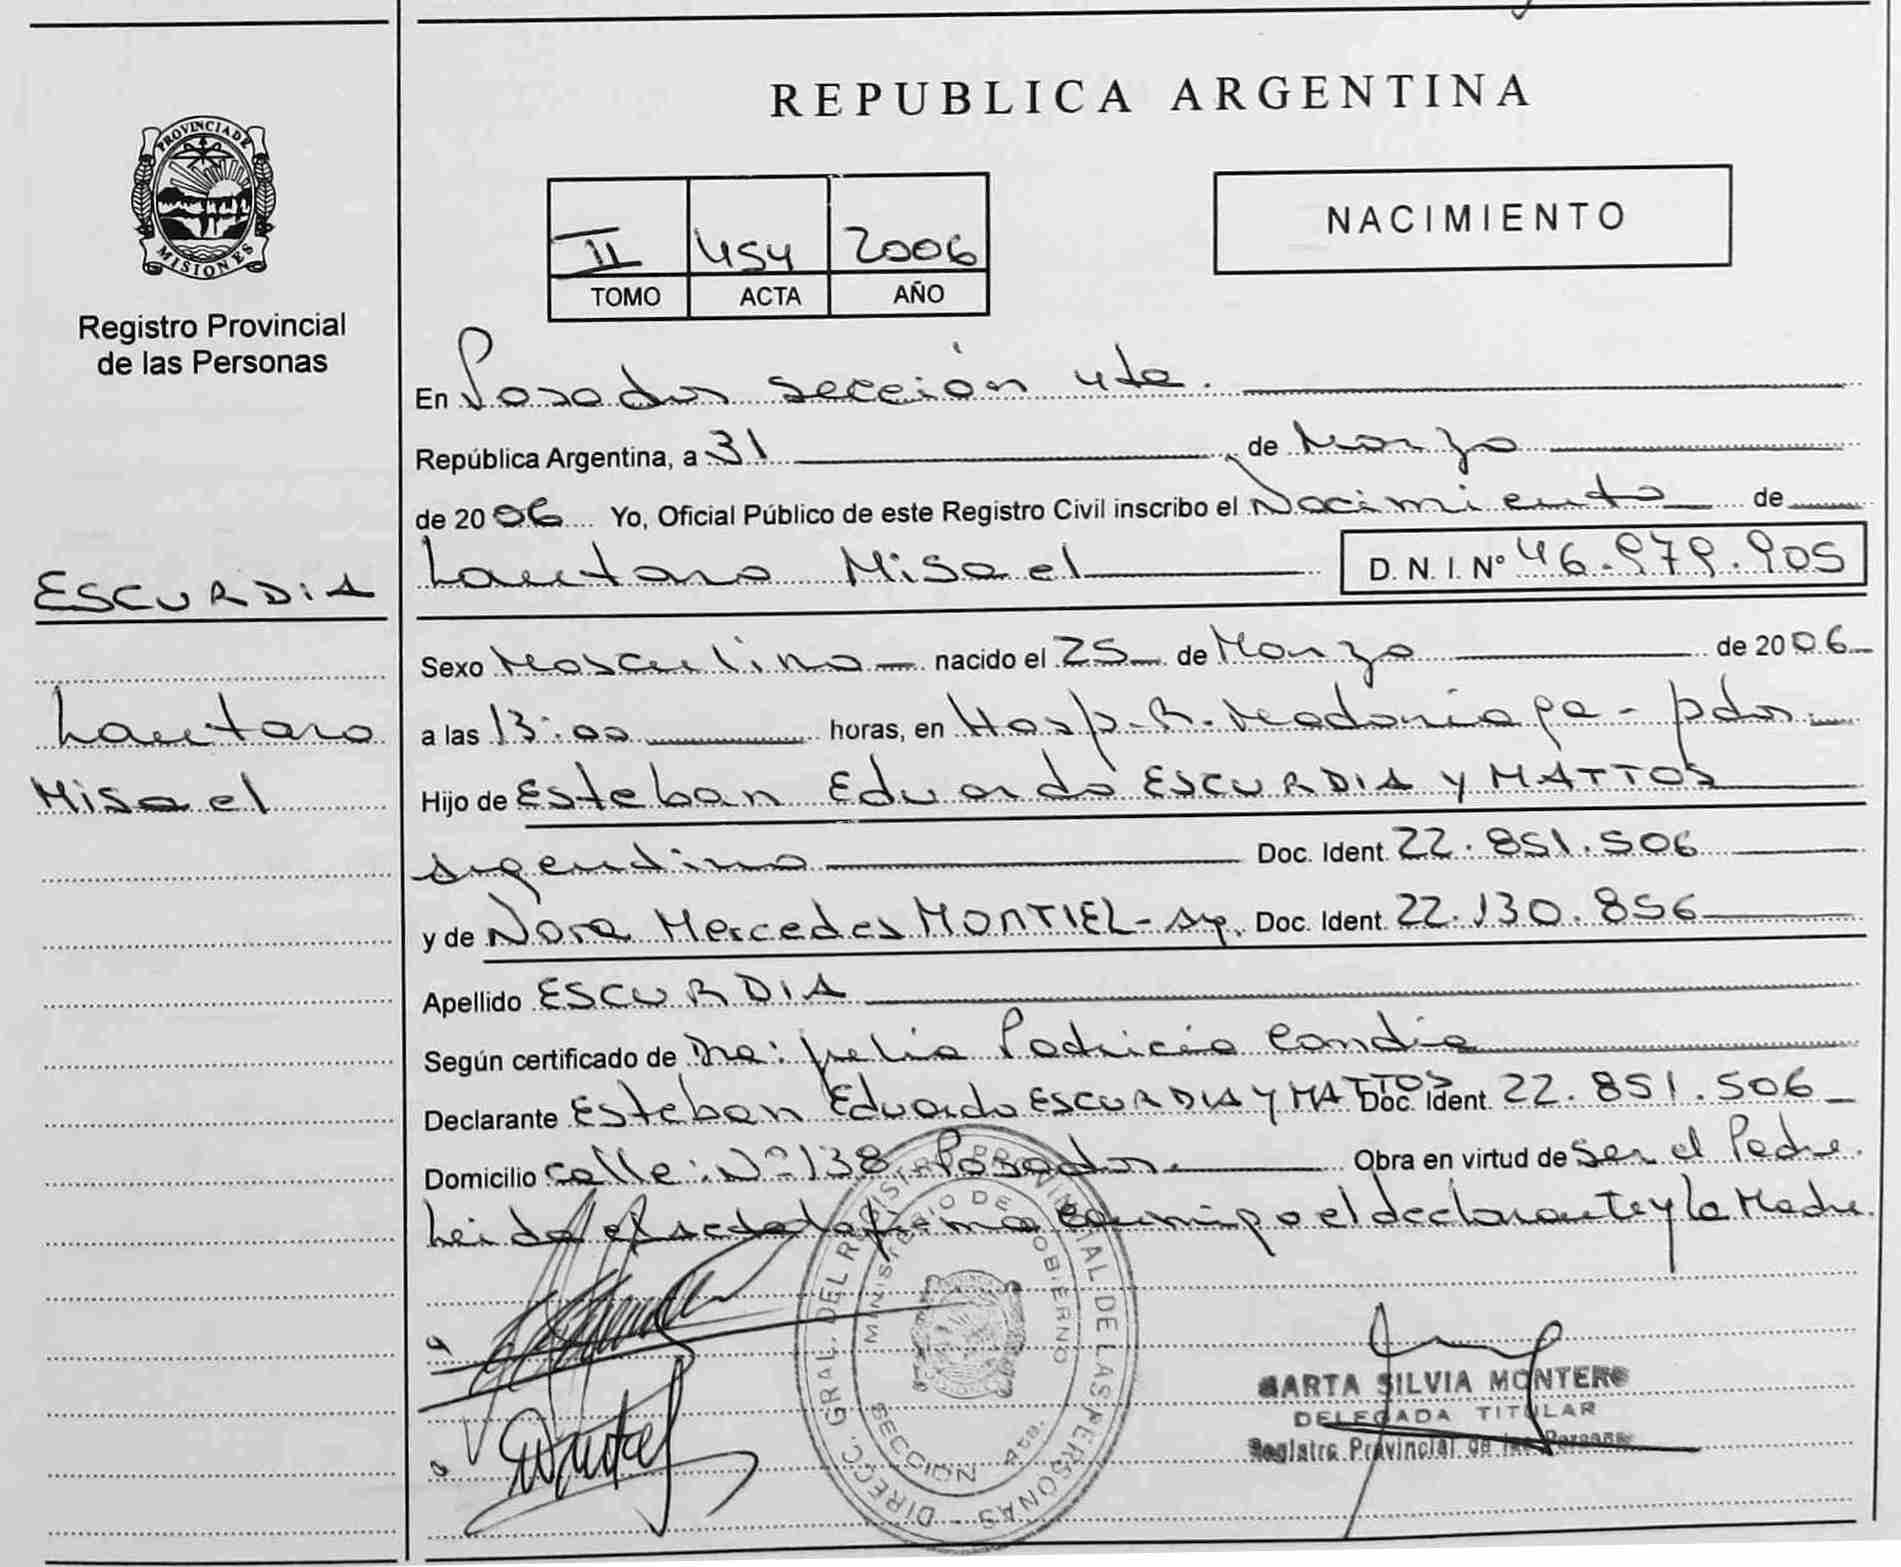 PROVINCIA DE
MISIONES
Registro Provincial
de las Personas
ESCURDIA
Lautaro
Misael
REPUBLICA ARGENTINA
II 454 2006
TOMO ACTA AÑO
NACIMIENTO
En Posadas sección 4ta.
República Argentina, a 31 de Marzo
de 2006 Yo, Oficial Público de este Registro Civil inscribo el Nacimiento de
Lautaro Misael D.N.I. Nº 46.979.905
Sexo Masculino nacido el 25 de Marzo de 2006
a las 13:00 horas, en Hosp. R. Madariaga - pdas.
Hijo de Esteban Eduardo ESCURDIA Y MATTOS
argentino Doc. Ident. 22.851.506
y de Nora Mercedes MONTIEL - Arg. Doc. Ident. 22.130.856
Apellido ESCURDIA
Según certificado de Dra: Julia Patricia Candia
Declarante Esteban Eduardo ESCURDIA Y MATTOS Doc. Ident. 22.851.506
Domicilio calle: Nº 138 Posadas. Obra en virtud de ser el Padre.
Leida el acta la firma conmigo el declarante y la Madre.
DIRECC. GRAL. DEL REGISTRO PROVINCIAL DE LAS PERSONAS
MINISTERIO DE GOBIERNO
SECCION 4ta.
MARTA SILVIA MONTERO
DELEGADA TITULAR
Registro Provincial de las Personas